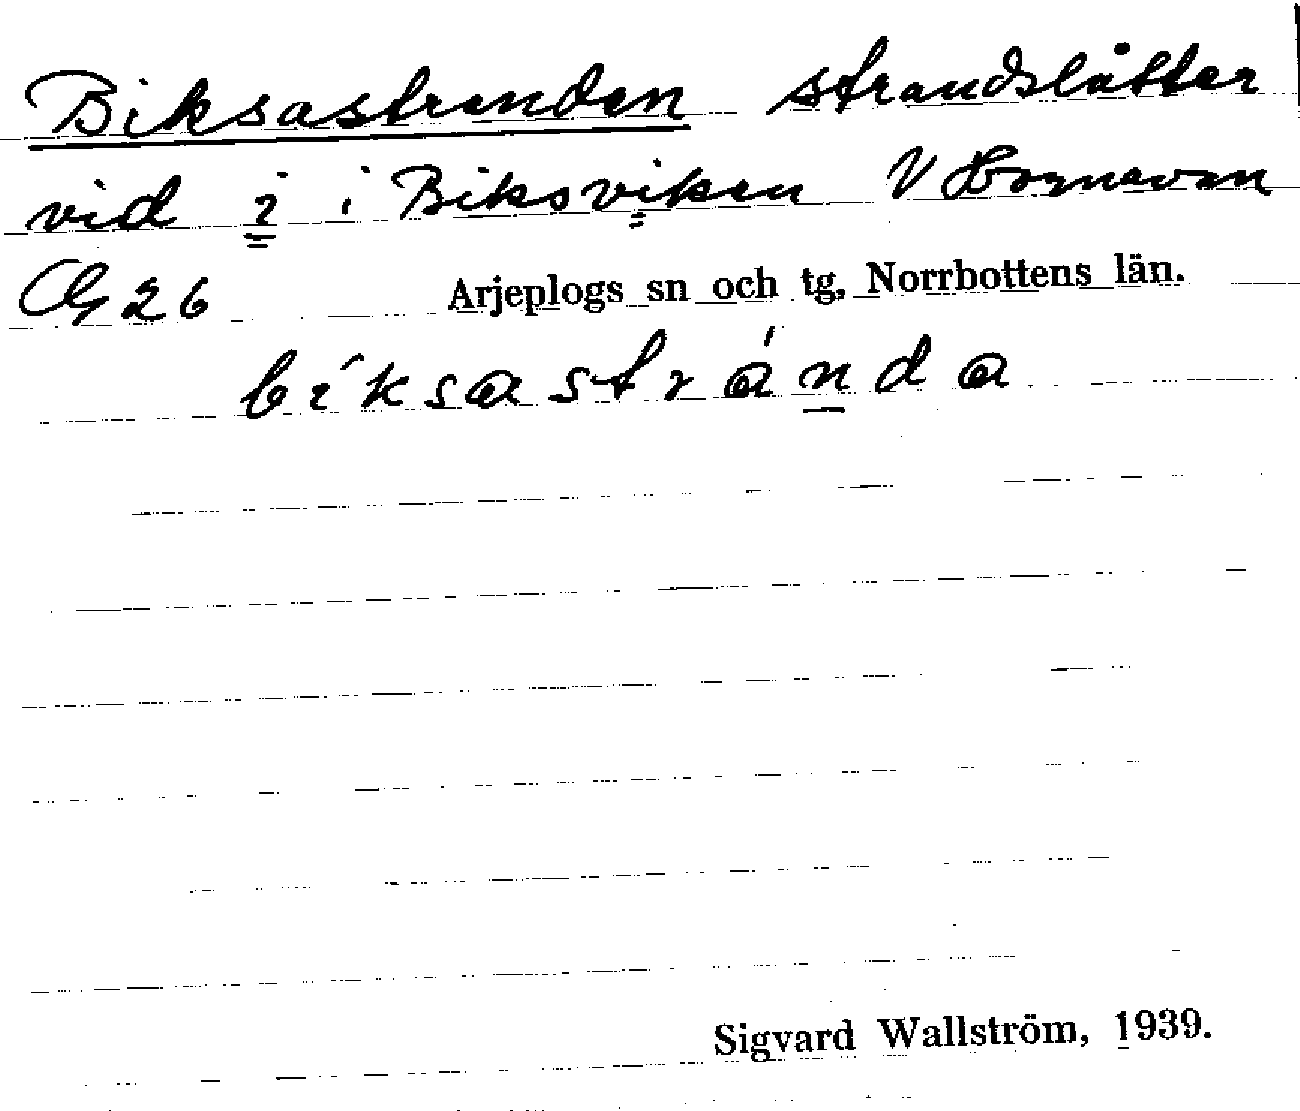 Biksastranden strandslåtter
vid i i Biksviken V Hornavan
Cg 26 Arjeplogs sn och tg, Norrbottens län.
bíksastránda
Sigvard Wallström, 1939.